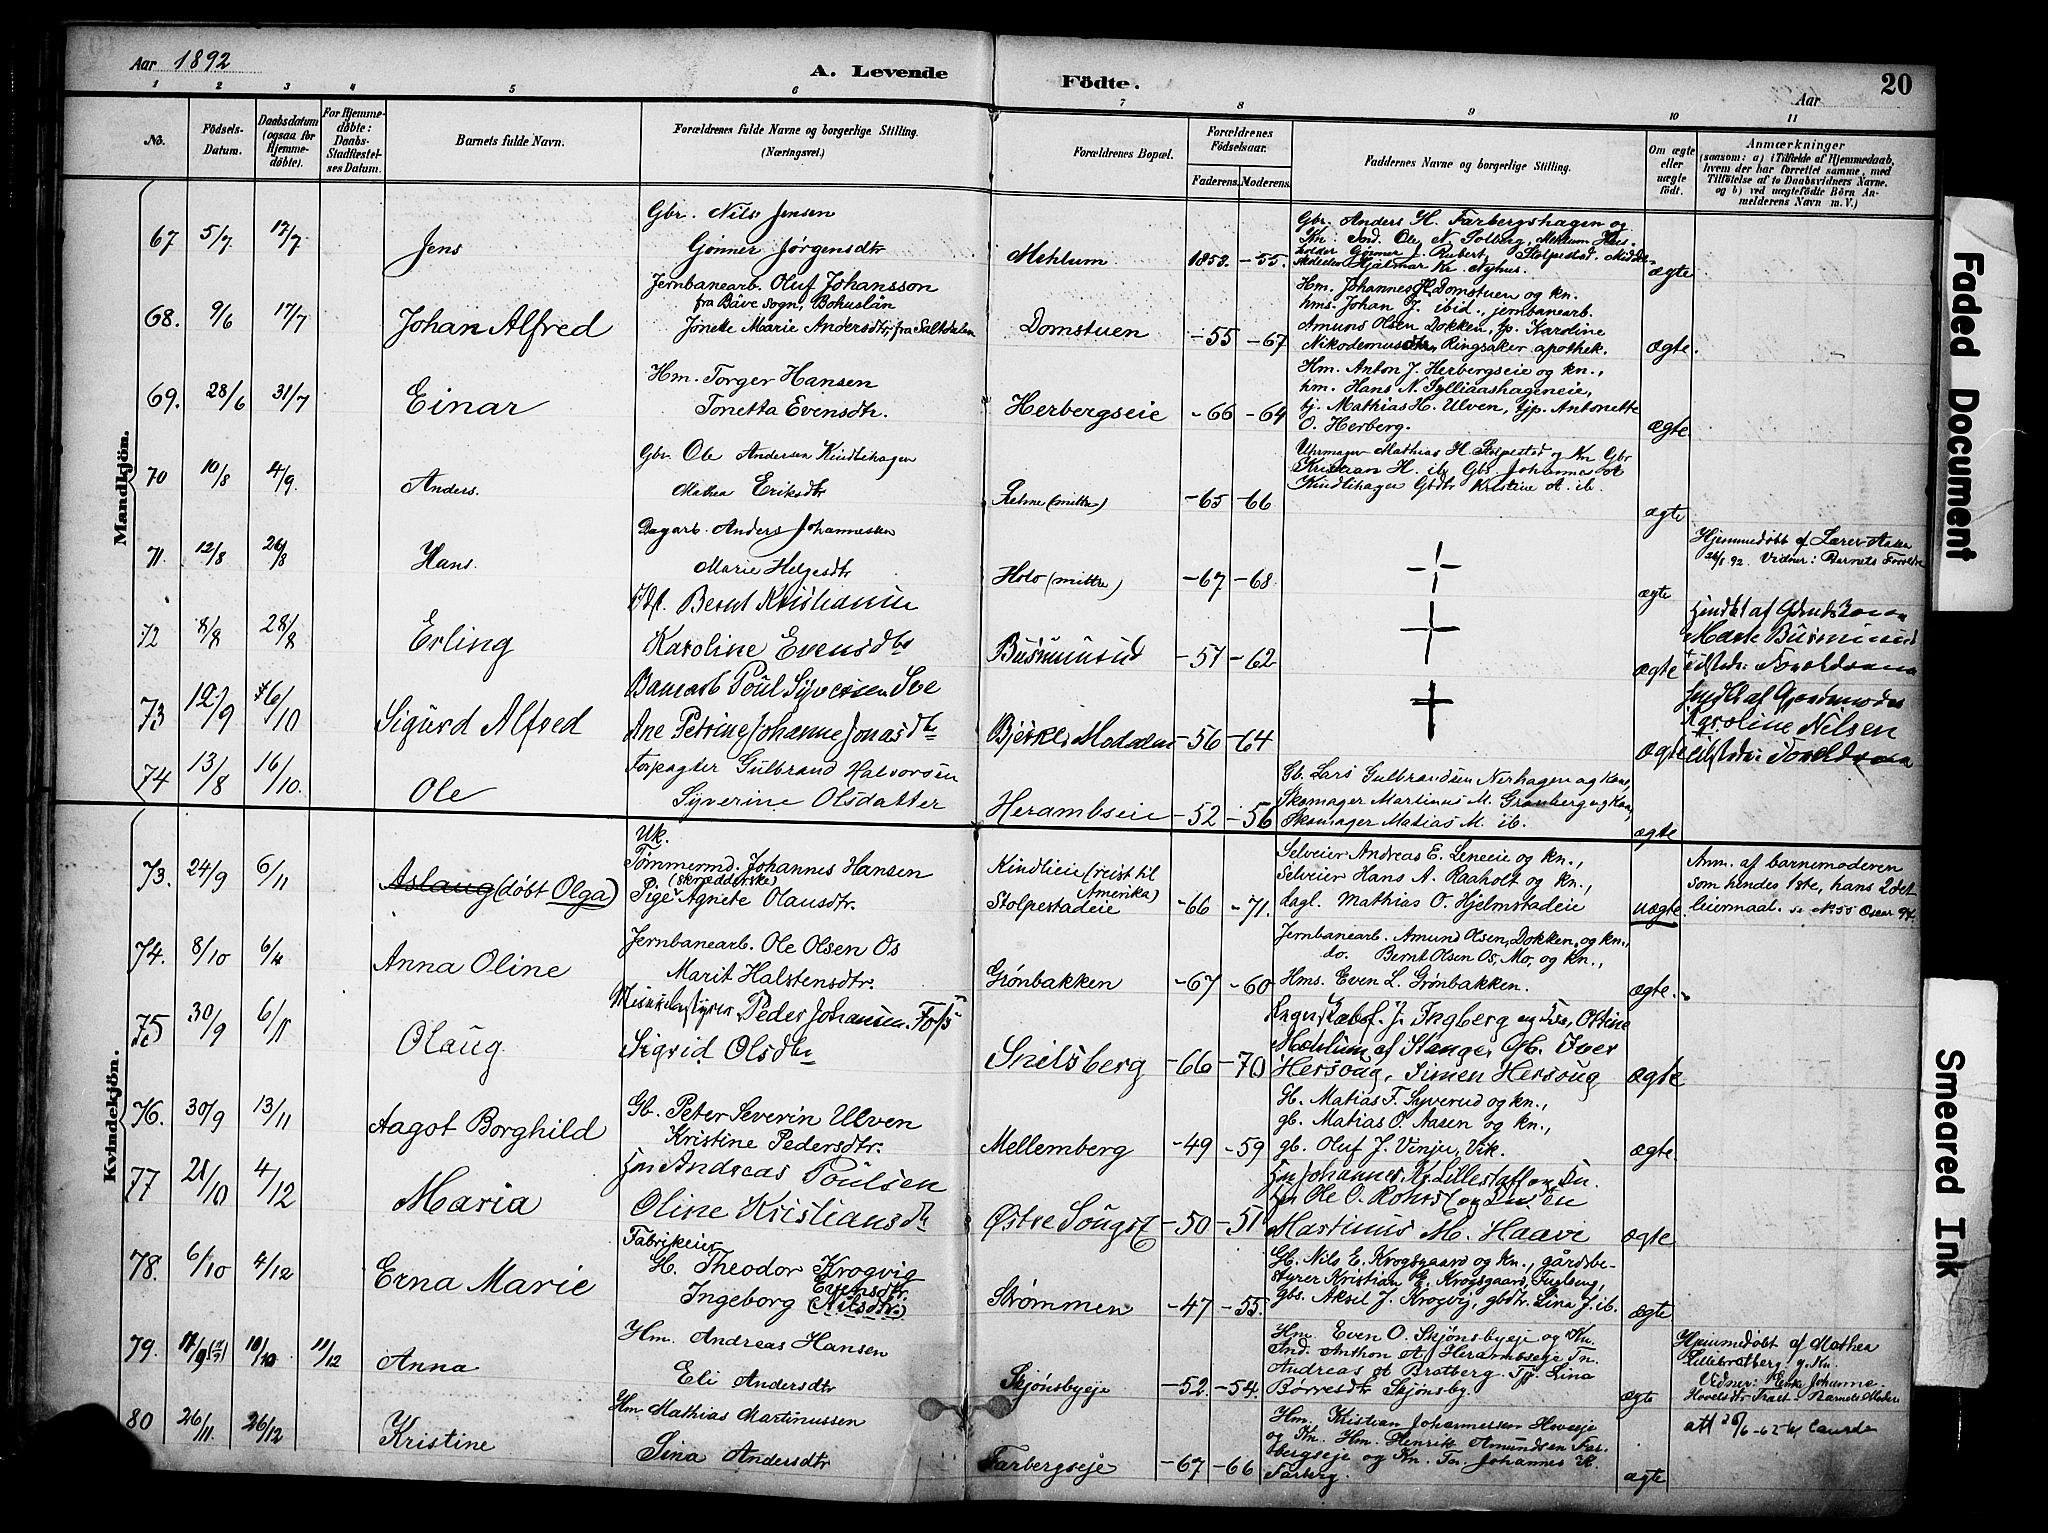 Aar 1892
A. Levende Födte.
Aar
20
1 2 3 4 5 6 7 8 9 10 11
No.
Födsels-Datum.
Daabsdatum (ogsaa for Hjemmedøbte).
For Hjemmedøbte: Daabs-Stadfæstelses Datum.
Barnets fulde Navn.
Forældrenes fulde Navne og borgerlige Stilling. (Næringsvei.)
Forældrenes Bopæl.
Forældrenes Födselsaar.
Faderens. Moderens.
Faddernes Navne og borgerlige Stilling.
Om ægte eller uægte födt.
Anmærkninger
(saasom: a) i Tilfælde af Hjemmedaab, hvem der har forrettet samme, med Tilföielse af to Daabsvidners Navne. og b) ved uægtefödte Börn Anmelderens Navn m. V.)
Mandkjön.
67 5/7 17/7 Jens
Gbr. Nils Jensen
Gønner Jørgensdtr
Mehlum 1853. -55.
Gbr. Anders H. Farbergshagen og
Kn. Ind. Ole N. Solberg, Mehlum
Gønner J. Rubert, Stolpestad,
Hjalmar Kr. Nyhus.
ægte
68. 9/6 17/7 Johan Alfred
Jernbanearb. Oluf Johansson
fra Bäve sogn, Bohuslän
Jonette Marie Andersdtr. fra Saltdalen
Domstuen -55 -67
Hm. Johannes H. Domstuen og kn.
hms. Johan J. ibid., jernbanearb.
Amuns Olsen Dokken, tp. Karoline
Nikodemusdtr, Ringsaker apothek.
ægte.
69. 28/6 31/7 Einar
Hm. Torger Hansen
Tonetta Evensdtr.
Herbergseie -66 -64
Hm. Anton J. Herbergseie og kn.,
hm. Hans N. Gylliaashageneie,
tj. Mathias H. Ulven, tjp. Antonette
O. Herberg.
ægte
70 10/8 4/9. Anders.
Gbr. Ole Andersen Kindlihagen
Mathea Eriksdtr
(mittre) -65 -66
Uhrmager Mathias H Stolpestad og Kn Gbr
Kristian H. ib Gbs. Johannes A
Kindlihagen Gbdtr Kristine A. ib.
ægte
71. 12/8 26/8 Hans.
Dagarb. Anders Johannessen
Marie Helgesdtr
Holo (mittre) -67 -68.
ægte
Hjemmedøbt af Lærer Aasen
26/8 92. Vidner: Barnets Forældre
72 8/8 28/8 Erling
Bernt Kristiansen
Karoline Evensdtr
Busmunsud -57 -62
ægte
Marte Busmunsud
73 12/9 6/10 Sigurd Alfred
Banearb Poul Syversen Sve
Ane Petrine Johanne Jonasdtr
Bjerke Moddalen -56 -64
ægte
Karoline Nilsen
74 13/8 16/10. Ole
Forpagter Gulbrand Halvorsen
Syverine Olsdatter
Herambseie -52 -56
Gb. Lars Gulbrandsen Nerhagen og Kone,
Skomager Martinus M. Granberg og Kone,
Skomager Matias M. ib.
ægte
Kvindekjön.
73. 24/9 6/11 Aslaug (døbt Olga)
Uk.
Tømmermd. Johannes Hansen
(skrædderske)
Pige Agnete Olausdtr.
Kindlieie (reist til Amerika)
Stolpestadeie -66 -71.
Selveier Andreas E. Leneeie og kn.,
Selveier Hans A. Raaholt og kn.,
dagl. Mathias O. Hjelmstadeie
uægte
Anm. af barnemoderen
som hendes 1ste, hans 2det
leiermaal. se No 55 Oscar 94.
74. 8/10 6/11 Anna Oline
Jernbanearb. Ole Olsen Os
Marit Halstensdtr.
Grønbakken -67 -60
Jernbanearb. Amund Olsen, Dokken, og kn.,
do. Bernt Olsen Os, Mo, og kn.,
Hms. Even L. Grønbakken.
ægte.
75 30/9 6/11 Olaug
Peder Johansen Foss
Sigrid Olsdtr
Snilsberg -66 -70
J. Ingberg og Ottine
Mæhlum af Stange, Gb. Iver
Hersoug, Simen Hersoug
ægte
76. 30/9 13/11 Aagot Borghild
Gb. Peter Severin Ulven
Kristine Pedersdtr.
Mellemberg -49 -59
Gb. Matias F. Syverud og kn.,
gb. Matias O. Aasen og kn.,
gb. Oluf J. Vinju, Vik.
ægte.
77 21/10 4/12 Maria
Hm Andreas Poulsen
Oline Kristiansdtr
Østre Sougst -50 -51
Hm Johannes Kr. Lillestaff og
Hm Ole O. Rohrst og
Martinus M. Haave
ægte
78. 6/10 4/12 Erna Marie
Fabrikeier
Gb. Theodor Krogvig
Evensdtr.
Ingeborg (Nilsdtr.)
Strømmen -47 -55.
Gb. Nils E. Krogsgaard og kn., gårdsbestyrer
Kristian E. Krogsgaard, Fuglseng,
gbs. Aksel J. Krogvig, gbdtr. Lina J. ib.
ægte
79. 11/9 10/10 11/12 Anna
Hm. Andreas Hansen
Eli Andersdtr
Skjønsbyeje -52. -54.
Hm. Even O. Skjønsbyeje og Kn.
Ind. Anthon A. Herambseje Tn.
Andreas Bratberg. Tj. Lina
Børresdtr Skjønsby.
ægte
Hjemmedøbt af Mathea
Lillebratberg g. Kn.
Vidner: Johanne
Hovelsdtr. Barnets Moder
80 26/11. 26/12 Kristine
Hm Mathias Martinussen
Lina Andersdtr
Farbergseje -67 -66
Hm. Kristian Johannessen Hoveeje
og Kn. Hm. Henrik Amundsen Farbergseje
og Kn. Tn. Johannes K.
Farberg.
ægte
Faded Document
Smeared Ink